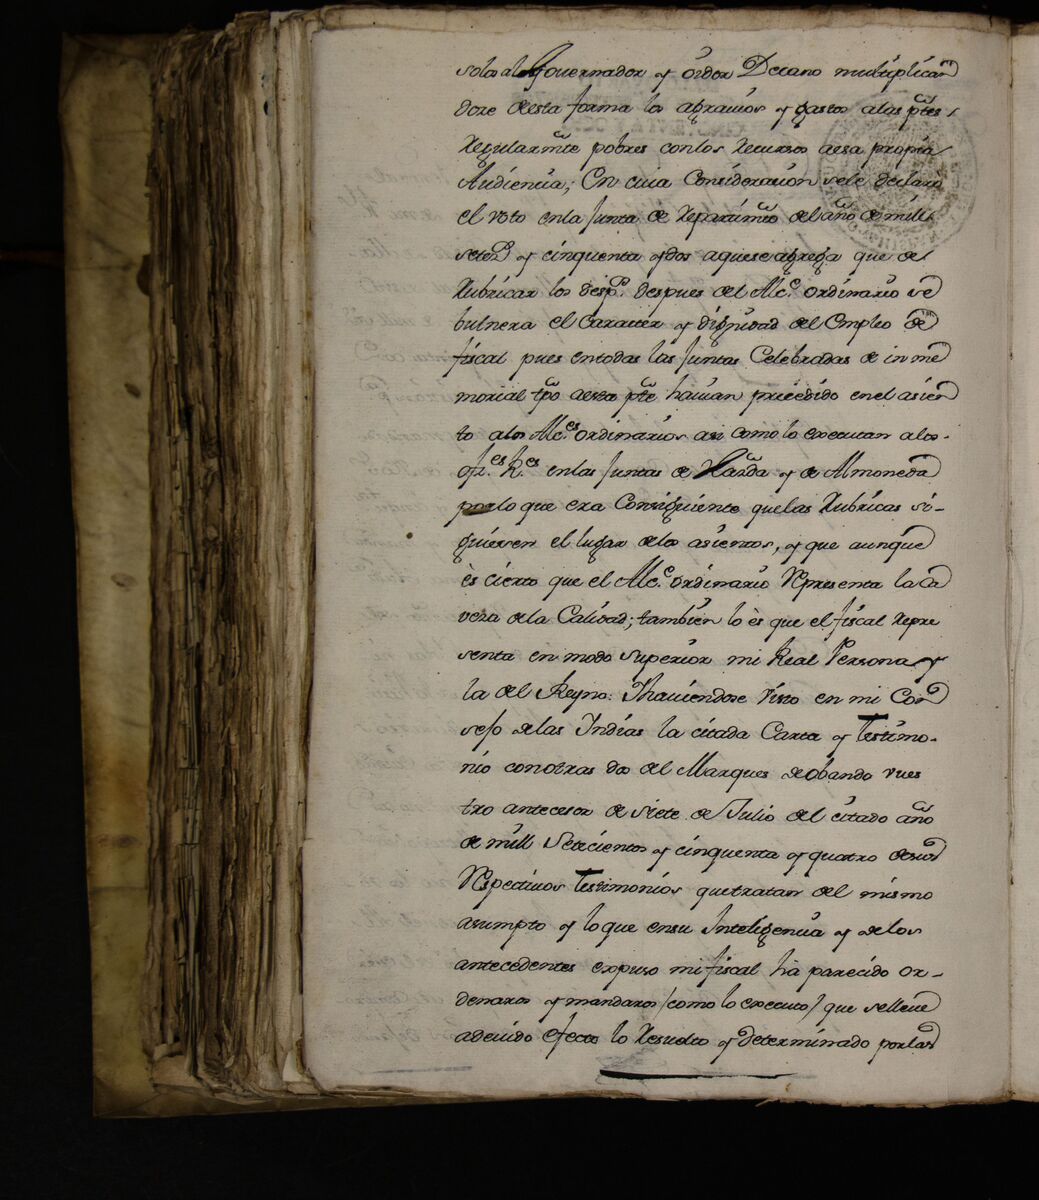 solos al Governador y oidor Decano multiplican
dose desta forma los agravios y gastos alas ptes
regularmte pobres conlos recursos aesa propria
Audiencia; En cuia Consideracion sele declaró
el voto enla Junta de repartimto del año de mill
setezs y cinquenta ydos aquese agrega que del
rubricar los desps. despues del Alce. ordinario se
bulnera el Caracter y dignidad del Empleo de
fiscal pues entodas las Juntas Celebradas de in me
morial tpo aesta pte havian precedido enel asien
to alos Alces ordinarios asi como lo executan alos
ofis. Rs. enlas Juntas de Hazda y de Almoneda
porlo que era Consiguiente quelas rubricas si-
guiesen el lugar delos asientos, y que aunque
ès cierto que el Alce. ordinario representa la ca
veza dela Calidad; tambien lo ès que el fiscal repre
senta en modo superior mi Real Persona y
la del Reyno: Ihaviendose visto en mi Con
sejo delas Indias la citada Carta y testimo-
nio conotras dos del Marques deobando vues
tro antecesor de siete de Julio del citado año
de mill Setecientos y cinquenta y quatro desus
respectivos testimonios quetratan del mismo
asumpto y loque ensu Inteligencia y delos
antecedentes expuso mi fiscal ha parecido or-
denaros y mandaros (como lo executo) que selleve
adevido efecto lo resuelto y determinado porlas